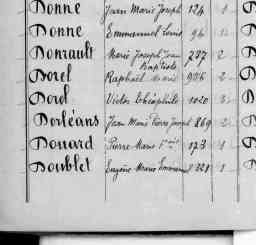 Donne Jean Marie Joseph 124 1
Donne Emmanuel Louis 94
Donrault Marie Joseph Jean Baptiste 737 2
Dorel Raphaël Marie 936 2
Dorol Victor Théophile 1020 3
Dorléans Jean Marie Pierre Joseph 869 2
Douard Pierre Marie 173 1
Doublet Eugène Marie 1321 1